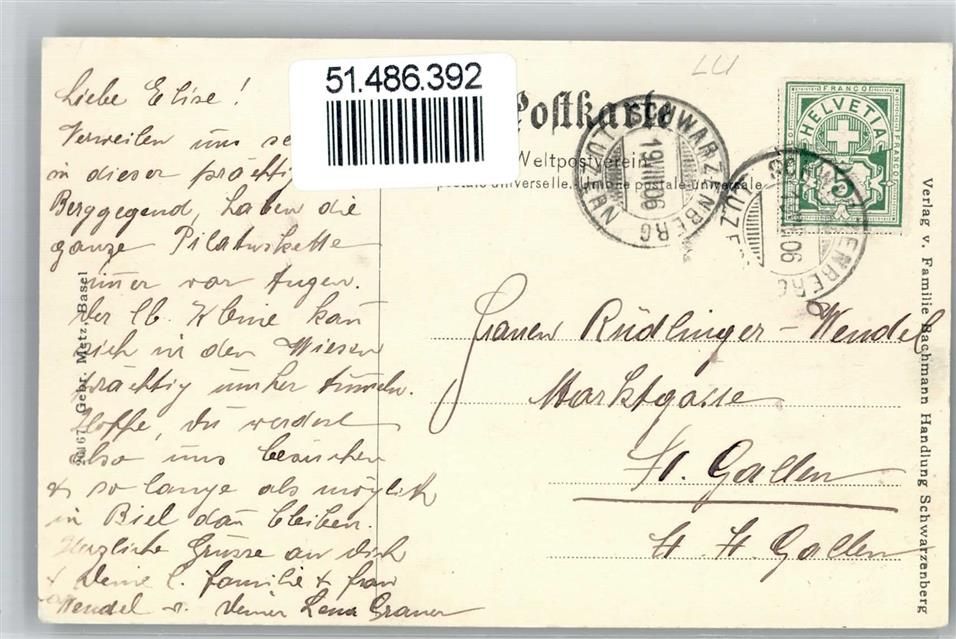 51.486.392
LU
Postkarte
Weltpostverein
postale universelle. Unione postale universale
SCHWARZENBERG
19.VIII.06
(LUZERN)
SCHWARZENBERG
VIII.06
(LUZERN)
FRANCO
HELVETIA
FRANCO
5
Liebe Elise!
Verweilen uns
in dieser prächtig
Berggegend, haben die
ganze Pilatuskette
imer vor Augen.
Der lb. Kleine kan
sich in den Wiesen
prächtig umher tumeln.
Hoffe, du werdest
also uns besuchen
& so lange als möglich
in Biel dan bleiben.
Herzliche Grüsse an dich
& deine l. Familie & Frau
Wendel v. deiner Lena Graner
Frauen Rüdlinger-Wendel
Marktgasse
St. Gallen
St. Gallen
Gebr. Metz, Basel
Verlag v. Familie Bachmann Handlung Schwarzenberg